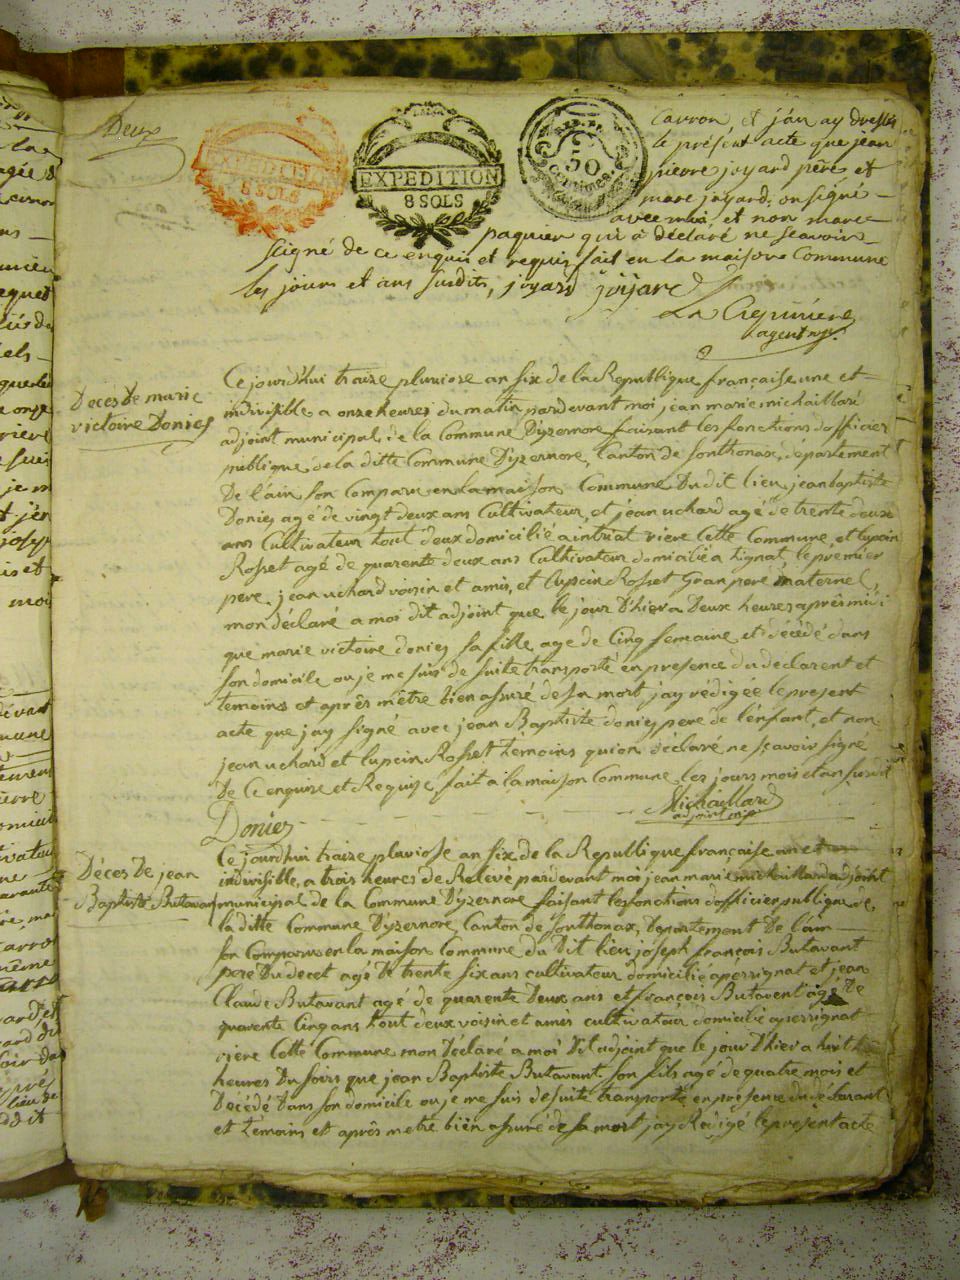 Deux
EXPEDITION
8 SOLS
EXPEDITION
8 SOLS
50
Centimes
Carron et j'an ay dressée
le présent acte que jean
pierre joyard pére et
marc joyard, on signé
avec moi et non marc
paquier qui à déclaré ne scavoir
seigné de ce enquis et requis fait en la maison Commune
les jours et ans susdits, joyard joyard
agent mpl.
Déces de marie
victoire Doniez
Ce jourd'hui traize pluviose an six de la Republique française une et
indivisible a onze heures du matin pardevant moi jean marie michaillard
adjoint municipal de la Commune Dyzernore faisant les fonctions dofficier
publique de la ditte Commune Dyzernore, Canton de Sonthonax, département
De l'ain son Comparu en la maison Commune Dudit lieu jean baptiste
Doniez agé de vingt deux ans Cultivateur, et jean uchard agé de trente deux
ans Cultivateur tout deux domicilié a intriat riere Cette Commune, et lupcin
Rosset agé de quarente deux ans Cultivateur domicilié a tignat, le premier
pere, jean uchard voisin et amis, et lupcin Rosset Gran peré maternel,
mon déclaré a moi dit adjoint que le jour D'hier a Deux heures aprês midi
que marie victoire doniez sa fille age de Cinq semaine et décédé dans
son domicile ou je me suis de suite transporté en presence du declarent et
temoins et aprês m'être bien assuré de sa mort jay rédigée le present
acte que jay signé avec jean Baptiste doniez pere de l'enfant, et non
jean uchard et lupcin Rosset témoins qui on déclaré ne scavoir signé
De Ce enquise et Requise fait a la maison Commune les jours mois et an susdit
Michaillard
adjoint mpl
Doniez
Déces De jean
Baptiste Butavant
Ce jourdhui traize pluviose an six de la Republique française une et
indivisible, a trois heures de Relevé pardevant moi jean marie michaillard adjoint
municipal de la Commune Dyzernore faisant les fonctions dofficier publique de
la ditte Commune Dyzernore, Canton de Sonthonax, Departement De l'ain
son Comparu en la maison Commune du dit lieu joseph françois Butavant
pere Du decet agé De trente six ans cultivateur domicilié a perrignat et jean
Claude Butavant agé de quarente Deux ans et françois Butavent agé De
quarente Cinq ans tout deux voisin et amis cultivateur domicilié a perrignat
riere Cette Commune mon Déclaré a moi Dit adjoint que le jour D'hier a huit
heures Du soirs que jean Baptiste Butavant son fils agé de quatre mois et
Décédé Dans son domicile ou je me suis desuite transporté en présence du déclarant
et témoins et aprês metre bien assuré de sa mort jay Redigé le present acte